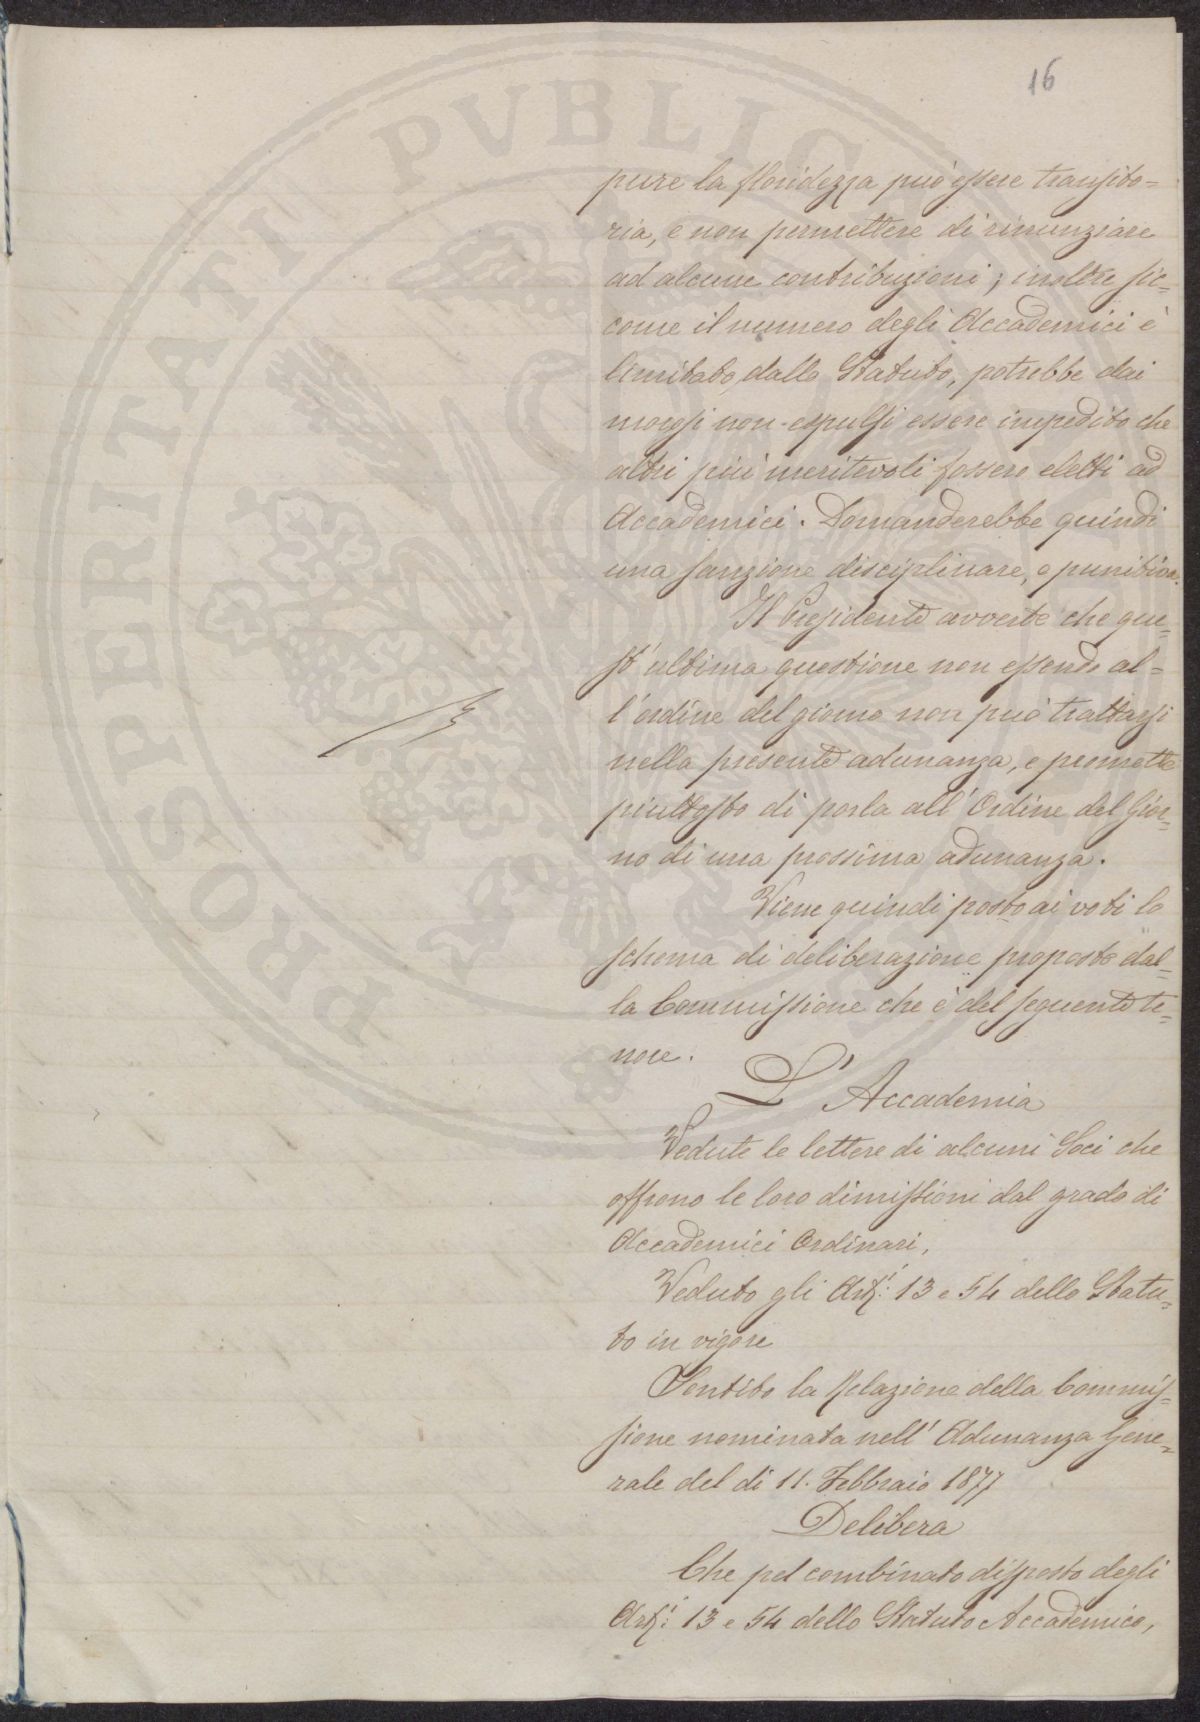 16
pure la floridezza può essere transito=
ria, e non permettere di rinunziare
ad alcune contribuzioni; inoltre sic=
come il numero degli Accademici è
limitato dallo Statuto, potrebbe dai
morosi non espulsi essere impedito che
altri più meritevoli fossero eletti ad
Accademici. Domanderebbe quindi
una sanzione disciplinare, o punitiva.
Il Presidente avverte che que=
st'ultima questione non essendo al=
l'ordine del giorno non può trattarsi
nella presente adunanza, e promette
piuttosto di porla all'Ordine del Gior=
no di una prossima adunanza.
Viene quindi posto ai voti lo
schema di deliberazione proposto dal=
la Commissione che è del seguente te=
nore.
L'Accademia
Vedute le lettere di alcuni Soci che
offrono le loro dimissioni dal grado di
Accademici Ordinari,
Veduto gli Arti: 13 e 54 dello Statu=
to in vigore
Sentito la Relazione della Commis=
sione nominata nell'Adunanza Gene=
rale del dì 11. Febbraio 1877
Delibera
Che pel combinato disposto degli
Arti: 13 e 54 dello Statuto Accademico,
PROSPERITATI PVBLICAE